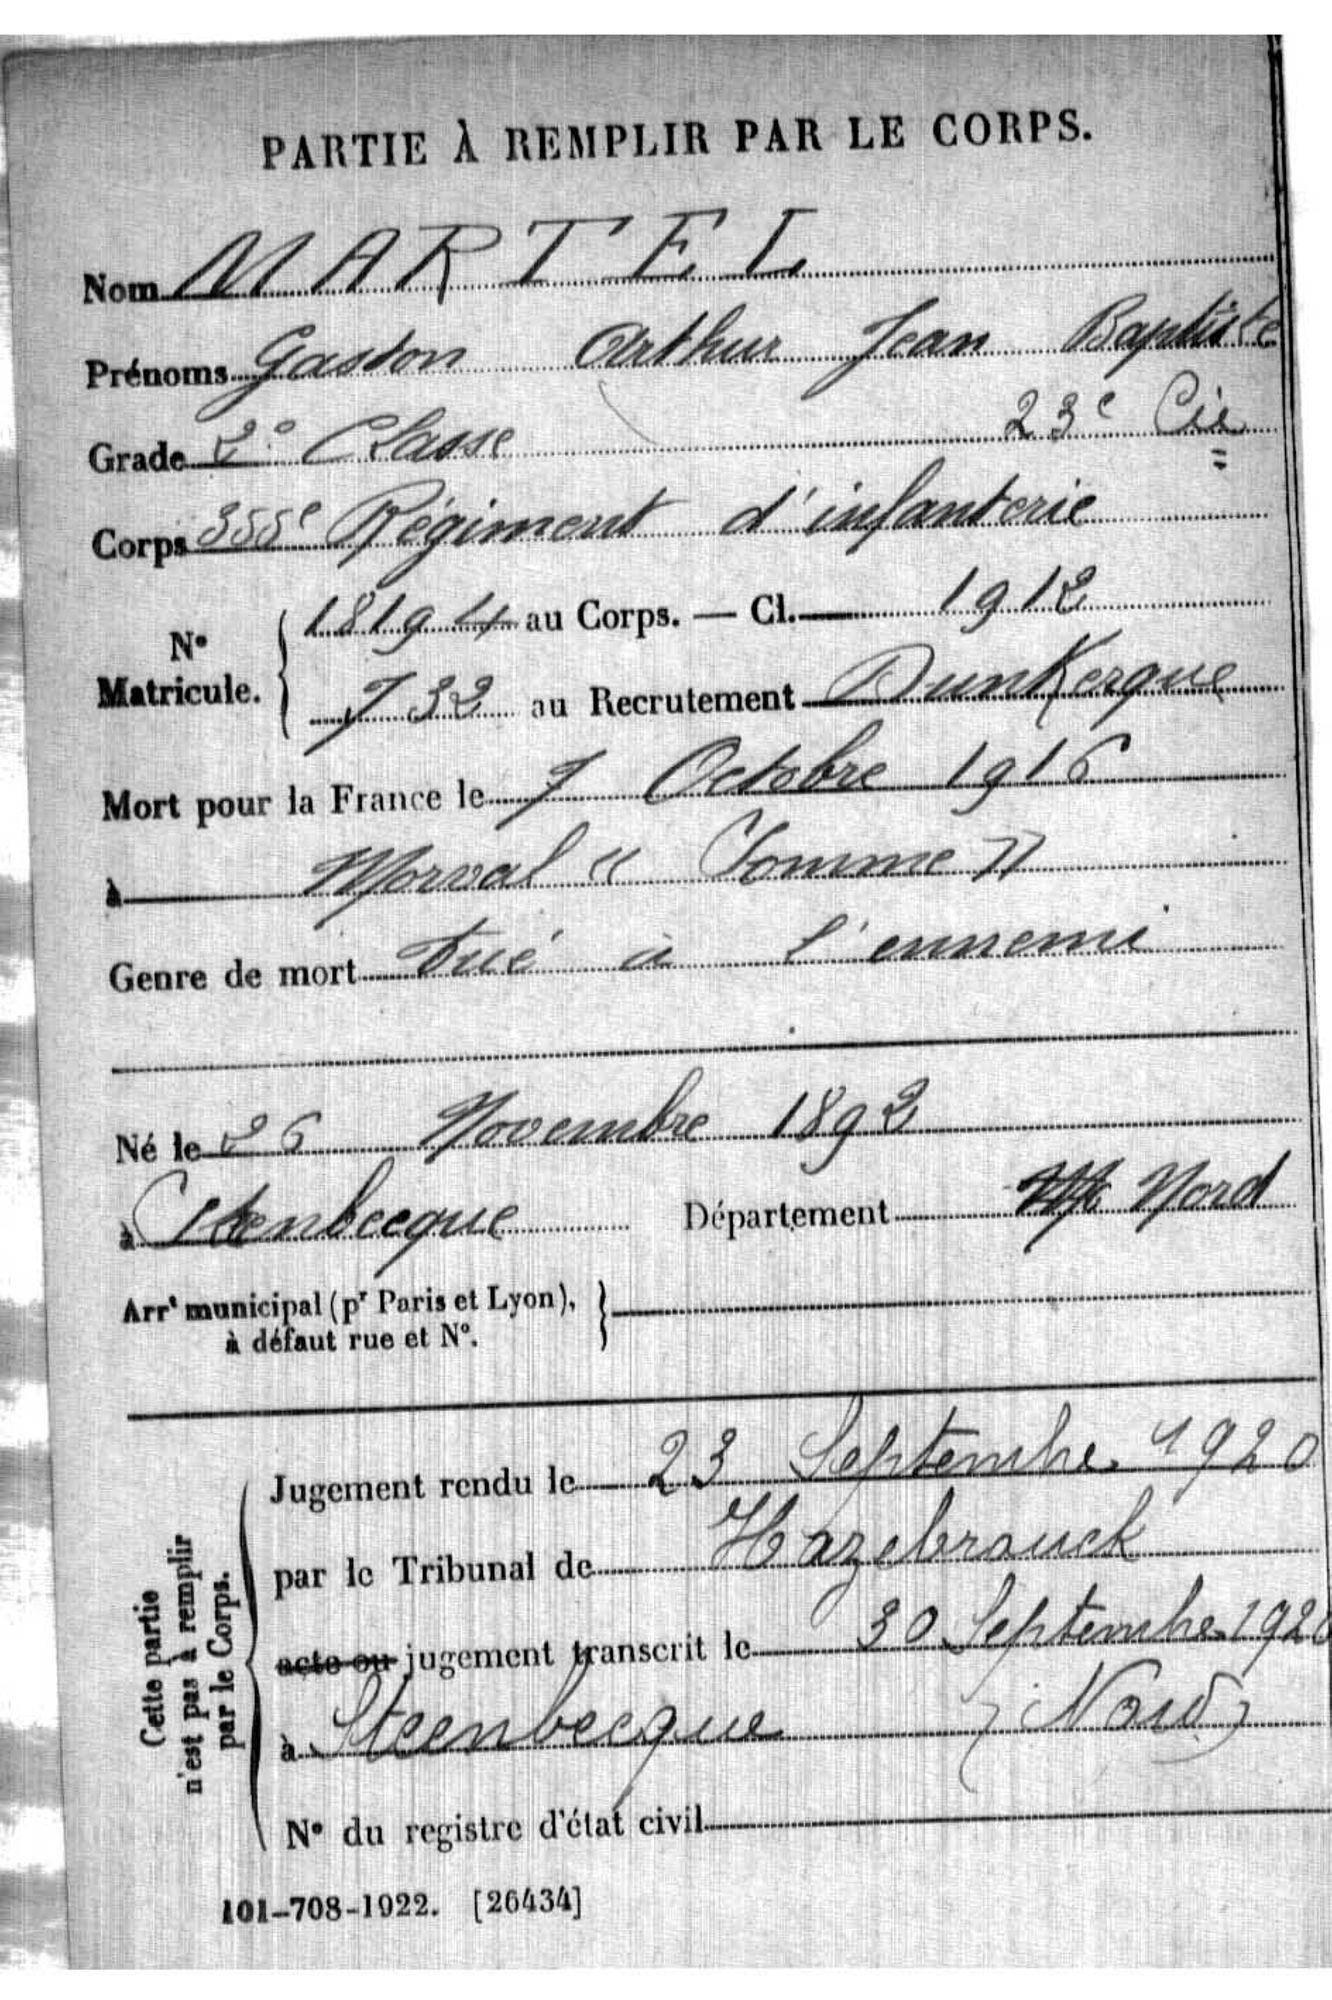 PARTIE À REMPLIR PAR LE CORPS.
Nom MARTEL
Prénoms Gaston Arthur Jean Baptiste
Grade 2e Classe 23e Cie
Corps 355e Régiment d'infanterie
No Matricule. { 18194 au Corps. — Cl. 1912
732 au Recrutement Dunkerque
Mort pour la France le 7 Octobre 1916
à Morval « Somme »
Genre de mort tué à l'ennemi
Né le 26 Novembre 1892
à Steenbecque Département Nord
Arrt municipal (pr Paris et Lyon), }
à défaut rue et No.
Cette partie
n'est pas à remplir
par le Corps.
Jugement rendu le 23 Septembre 1920
par le Tribunal de Hazebrouck
acte ou jugement transcrit le 30 Septembre 1920
à Steenbecque (Nord)
No du registre d'état civil
101-708-1922. [26434]